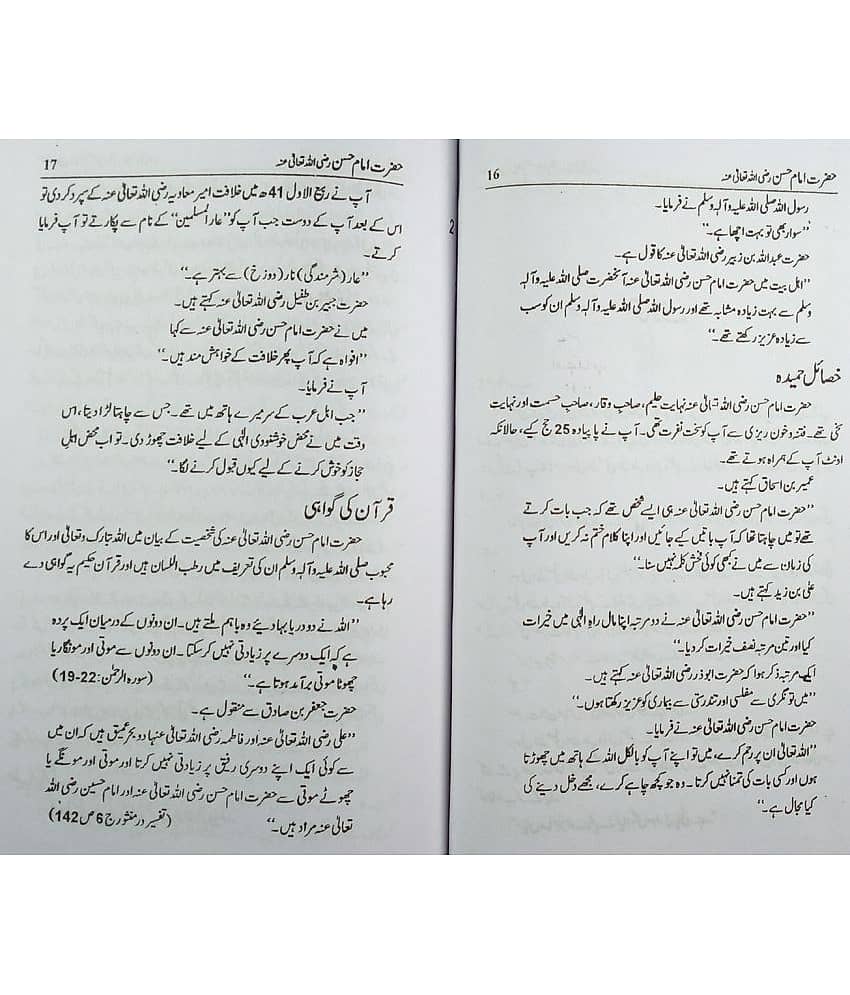 حضرت امام حسن رضی اللہ تعالیٰ عنہ 16
رسول اللہ صلی اللہ علیہ وآلہ وسلم نے فرمایا۔
”سوار بھی تو بہت اچھا ہے۔“
حضرت عبداللہ بن زبیر رضی اللہ تعالیٰ عنہ کا قول ہے۔
”اہل بیت میں حضرت امام حسن رضی اللہ تعالیٰ عنہ آنحضرت صلی اللہ علیہ وآلہ
وسلم سے بہت زیادہ مشابہ تھے اور رسول اللہ صلی اللہ علیہ وآلہ وسلم ان کو سب
سے زیادہ عزیز رکھتے تھے۔“
خصائل حمیدہ
حضرت امام حسن رضی اللہ تعالیٰ عنہ نہایت حلیم، صاحبِ وقار، صاحبِ حسمت اور نہایت
سخی تھے۔ فتنہ و خون ریزی سے آپ کو سخت نفرت تھی۔ آپ نے پا پیادہ 25 حج کیے، حالانکہ
اونٹ آپ کے ہمراہ ہوتے تھے۔
عمیر بن اسحاق کہتے ہیں۔
”حضرت امام حسن رضی اللہ تعالیٰ عنہ ہی ایسے شخص تھے کہ جب بات کرتے
تھے تو میں چاہتا تھا کہ آپ باتیں کیے جائیں اور اپنا کلام ختم نہ کریں اور آپ
کی زبان سے میں نے کبھی کوئی فحش کلمہ نہیں سنا۔“
علی بن زید کہتے ہیں۔
”حضرت امام حسن رضی اللہ تعالیٰ عنہ نے دو مرتبہ اپنا مال راہِ الٰہی میں خیرات
کیا اور تین مرتبہ نصف خیرات کر دیا۔“
ایک مرتبہ ذکر ہوا کہ حضرت ابوذر رضی اللہ تعالیٰ عنہ کہتے ہیں۔
”میں تونگری سے مفلسی اور تندرستی سے بیماری کو عزیز رکھتا ہوں۔“
حضرت امام حسن رضی اللہ تعالیٰ عنہ نے فرمایا۔
”اللہ تعالیٰ ان پر رحم کرے، میں تو اپنے آپ کو بالکل اللہ کے ہاتھ میں چھوڑتا
ہوں اور کسی بات کی تمنا نہیں کرتا۔ وہ جو کچھ چاہے کرے، مجھے دخل دینے کی
کیا مجال ہے۔“
حضرت امام حسن رضی اللہ تعالیٰ عنہ 17
آپ نے ربیع الاول 41ھ میں خلافت امیر معاویہ رضی اللہ تعالیٰ عنہ کے سپرد کر دی تو
اس کے بعد آپ کے دوست جب آپ کو ”عارالمسلمین“ کے نام سے پکارتے تو آپ فرمایا
کرتے۔
”عار (شرمندگی) نار (دوزخ) سے بہتر ہے۔“
حضرت جبیر بن طفیل رضی اللہ تعالیٰ عنہ کہتے ہیں۔
میں نے حضرت امام حسن رضی اللہ تعالیٰ عنہ سے کہا
”افواہ ہے کہ آپ پھر خلافت کے خواہش مند ہیں۔“
آپ نے فرمایا۔
”جب اہل عرب کے سر میرے ہاتھ میں تھے۔ جس سے چاہتا لڑا دیتا، اس
وقت میں نے محض خوشنودی الٰہی کے لیے خلافت چھوڑ دی۔ تو اب محض اہلِ
حجاز کو خوش کرنے کے لیے کیوں قبول کرنے لگا۔“
قرآن کی گواہی
حضرت امام حسن رضی اللہ تعالیٰ عنہ کی شخصیت کے بیان میں اللہ تبارک وتعالیٰ اور اس کا
محبوب صلی اللہ علیہ وآلہ وسلم ان کی تعریف میں رطب اللسان ہیں اور قرآن حکیم یہ گواہی دے
رہا ہے۔
”اللہ نے دو دریا بہا دیئے وہ باہم ملتے ہیں۔ ان دونوں کے درمیان ایک پردہ
ہے کہ ایک دوسرے پر زیادتی نہیں کر سکتا۔ ان دونوں سے موتی اور مونگا ریا
چھوٹا موتی برآمد ہوتا ہے۔“ (سورہ الرحمٰن: 22-19)
حضرت جعفر بن صادق سے منقول ہے۔
”علی رضی اللہ تعالیٰ عنہ اور فاطمہ رضی اللہ تعالیٰ عنہا دو بحر عمیق ہیں کہ ان میں
سے کوئی ایک اپنے دوسری رفیق پر زیادتی نہیں کرتا اور موتی اور مونگے یا
چھوٹے موتی سے حضرت امام حسن رضی اللہ تعالیٰ عنہ اور امام حسین رضی اللہ
تعالیٰ عنہ مراد ہیں۔“ (تفسیر در منثور ج 6 ص 142)